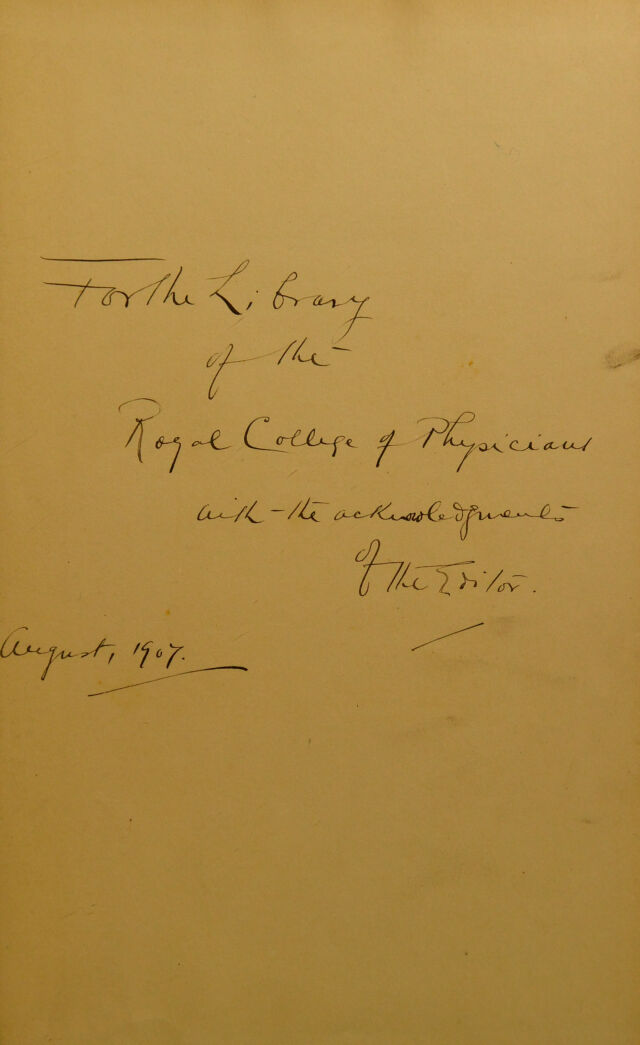 For the Library
of the
Royal College of Physicians
with the acknowledgments
of the Editor.
August, 1907.